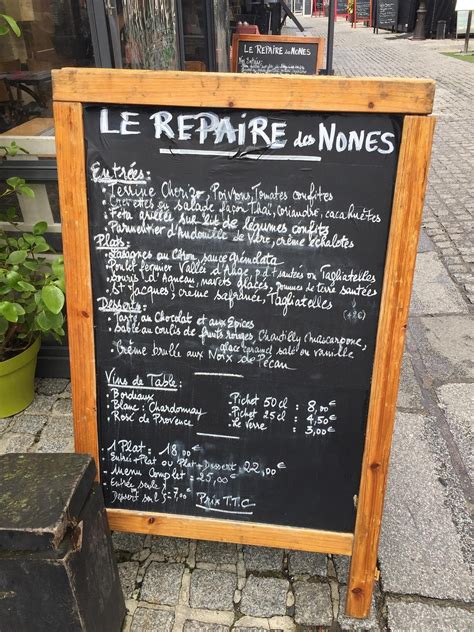 LE REPAIRE des NONES
LE REPAIRE des NONES
Entrées:
Terrine Chorizo, Poivrons, Tomates confites
Crevettes en salade façon Thaï, coriandre, cacahuètes
Feta grillée sur lit de légumes confits
Parmentier d'Andouille de Vire, crème échalotes
Plats:
Lasagnes au Chèvre, sauce
Poulet fermier Vallée d'Auge, p.d.t sautées ou Tagliatelles
Souris d'Agneau, navets glacés, Pommes de terre sautées
St Jacques, crème safranée, Tagliatelles (+2€)
Desserts:
Tarte au Chocolat et aux Epices
Sablé au coulis de fruits rouges, Chantilly mascarpone,
glace caramel salé ou vanille
Crème brulée aux Noix de Pécan
Vins de Table:
Bordeaux
Blanc: Chardonnay
Rosé de Provence
Pichet 50 cl: 8,00€
Pichet 25 cl: 4,50€
Le Verre: 3,00€
1 Plat: 18,00€
Entrée+Plat ou Plat+Dessert 22,00€
Menu Complet: 25,00€
Entrée seule:
Dessert seul: 7,00€
Prix T.T.C